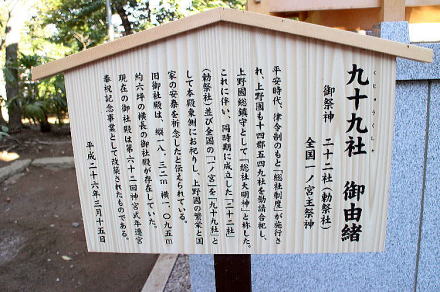 くじゅうくしゃ
九十九社 御由緒
御祭神 二十二社(勅祭社)
全国一ノ宮主祭神
平安時代、律令制のもと「総社制度」が施行さ
れ、上野國も十四郡五四九社を勧請合祀し、
上野國総鎮守として「総社大明神」と称した。
これに伴い、同時期に成立した「二十二社」
(勅祭社)並び全国の「一ノ宮」を「九十九社」と
して本殿東側にお祀りし、上野國の繁栄と国
家の安泰を祈念したと伝えられている。
旧御社殿は、縦一八・三二m 横一・〇九五m
約六坪の横長の御社殿が存在していた。
現在の御社殿は第六十二回神宮式年遷宮
奉祝記念事業として改築されたものである。
平成二十六年三月十五日